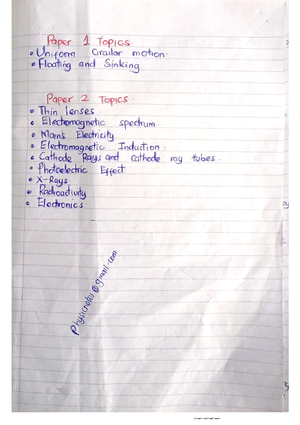 Paper 1 Topics
• Uniform Circular motion.
• Floating and Sinking
Paper 2 Topics.
• Thin lenses.
• Electromagnetic spectrum
• Mains Electricity
• Electromagnetic Induction.
• Cathode Rays and cathode ray tubes.
• Photoelectric Effect
• X-Rays
• Radioactivity
• Electronics.